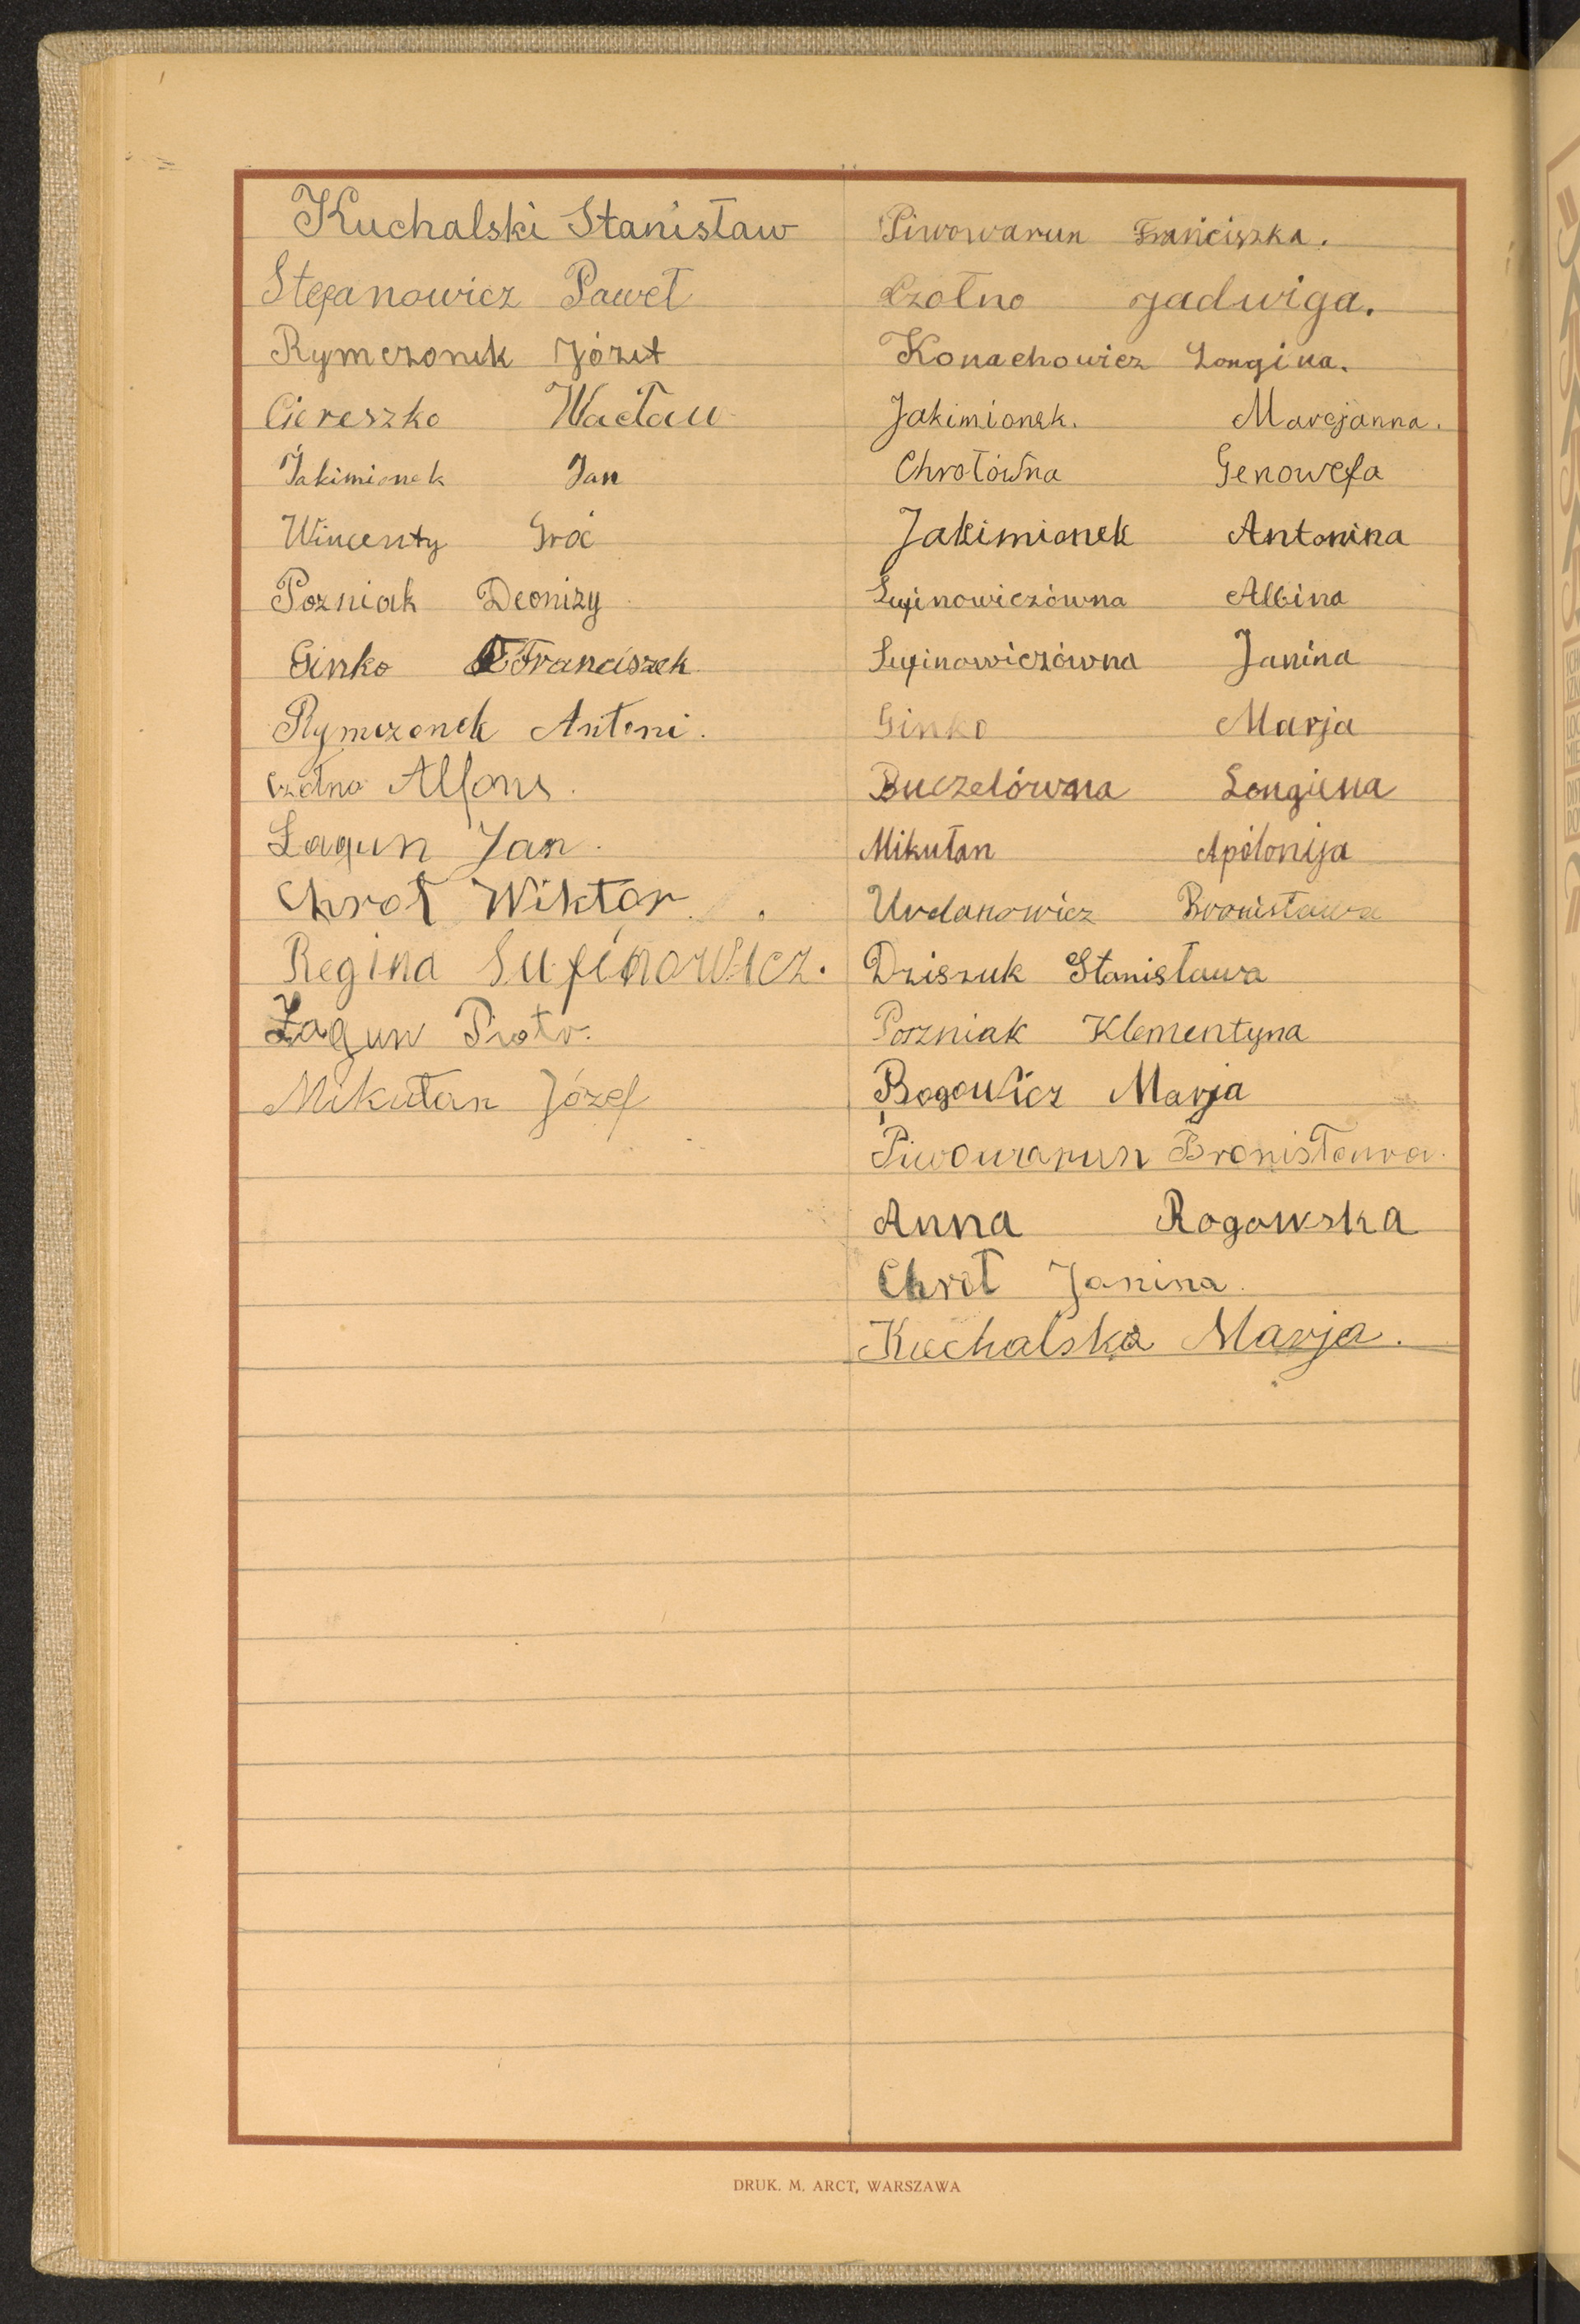 Kuchalski Stanisław
Stefanowicz Paweł
Rymczonek Józef
Ciereszko Wacław
Jakimionek Jan
Wincenty Groć
Pozniak Deonizy
Ginko Franciszek
Rymczonek Antoni.
Czołno Alfons.
Łagun Jan.
Chroł Wiktor.
Regina Sufinowicz.
Łagun Piotr.
Mikułan Józef
Piwowarun Franciszka.
Czołno Jadwiga.
Konachowicz Longina.
Jakimionek. Marcjanna.
Chrołówna Genowefa
Jakimionek Antonina
Sufinowiczówna Albina
Sufinowiczówna Janina
Ginko Marja
Buczelówna Longiena
Mikułan Apolonija
Urdanowicz Bronisława
Dziszuk Stanisława
Pozniak Klementyna
Bogowicz Marja
Piwowarun Bronisława.
Anna Rogowska
Chroł Janina.
Kuchalska Marja.
DRUK. M. ARCT, WARSZAWA